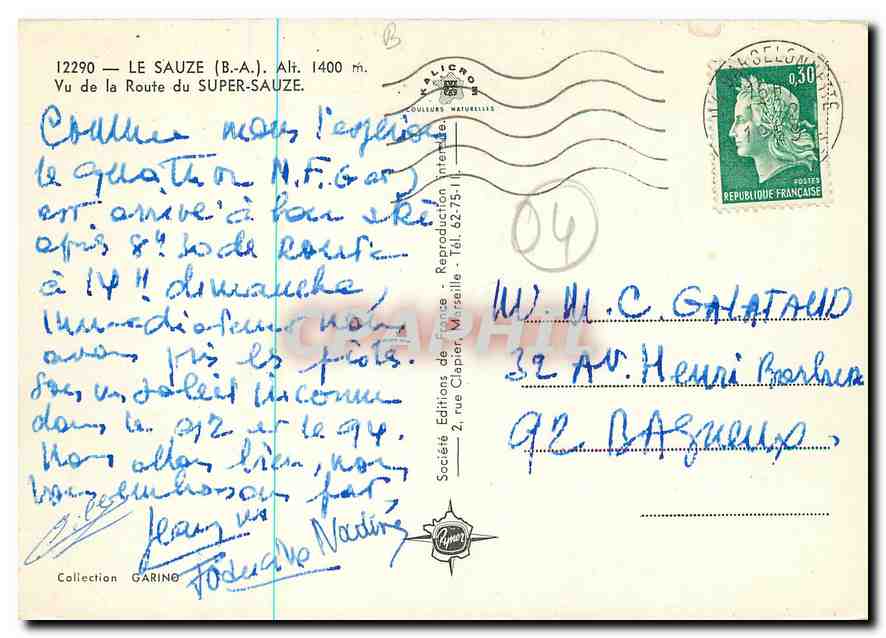 12290 — LE SAUZE (B.-A.). Alt. 1400 m.
Vu de la Route du SUPER-SAUZE.
Comme nous l'espérions
le quatuor
est arrivé à bon
après 8h 30 de route
à 14h dimanche,
immédiatement nous
avons pris les pistes.
Sous un soleil inconnu
dans le 92 et le 94.
Nous allons bien, nous
vous embrassons fort,
Jean
Nadine
Collection GARINO
KALICROM
COULEURS NATURELLES
Société Editions de France - Reproduction interdite.
2, rue Clapier, Marseille - Tél. 62-75-11.
Rymer
CPAPHIL
B
04
0,30
POSTES
REPUBLIQUE FRANÇAISE
M. C. GALATAUD
32 AV. Henri Barbusse
92 BAGNEUX